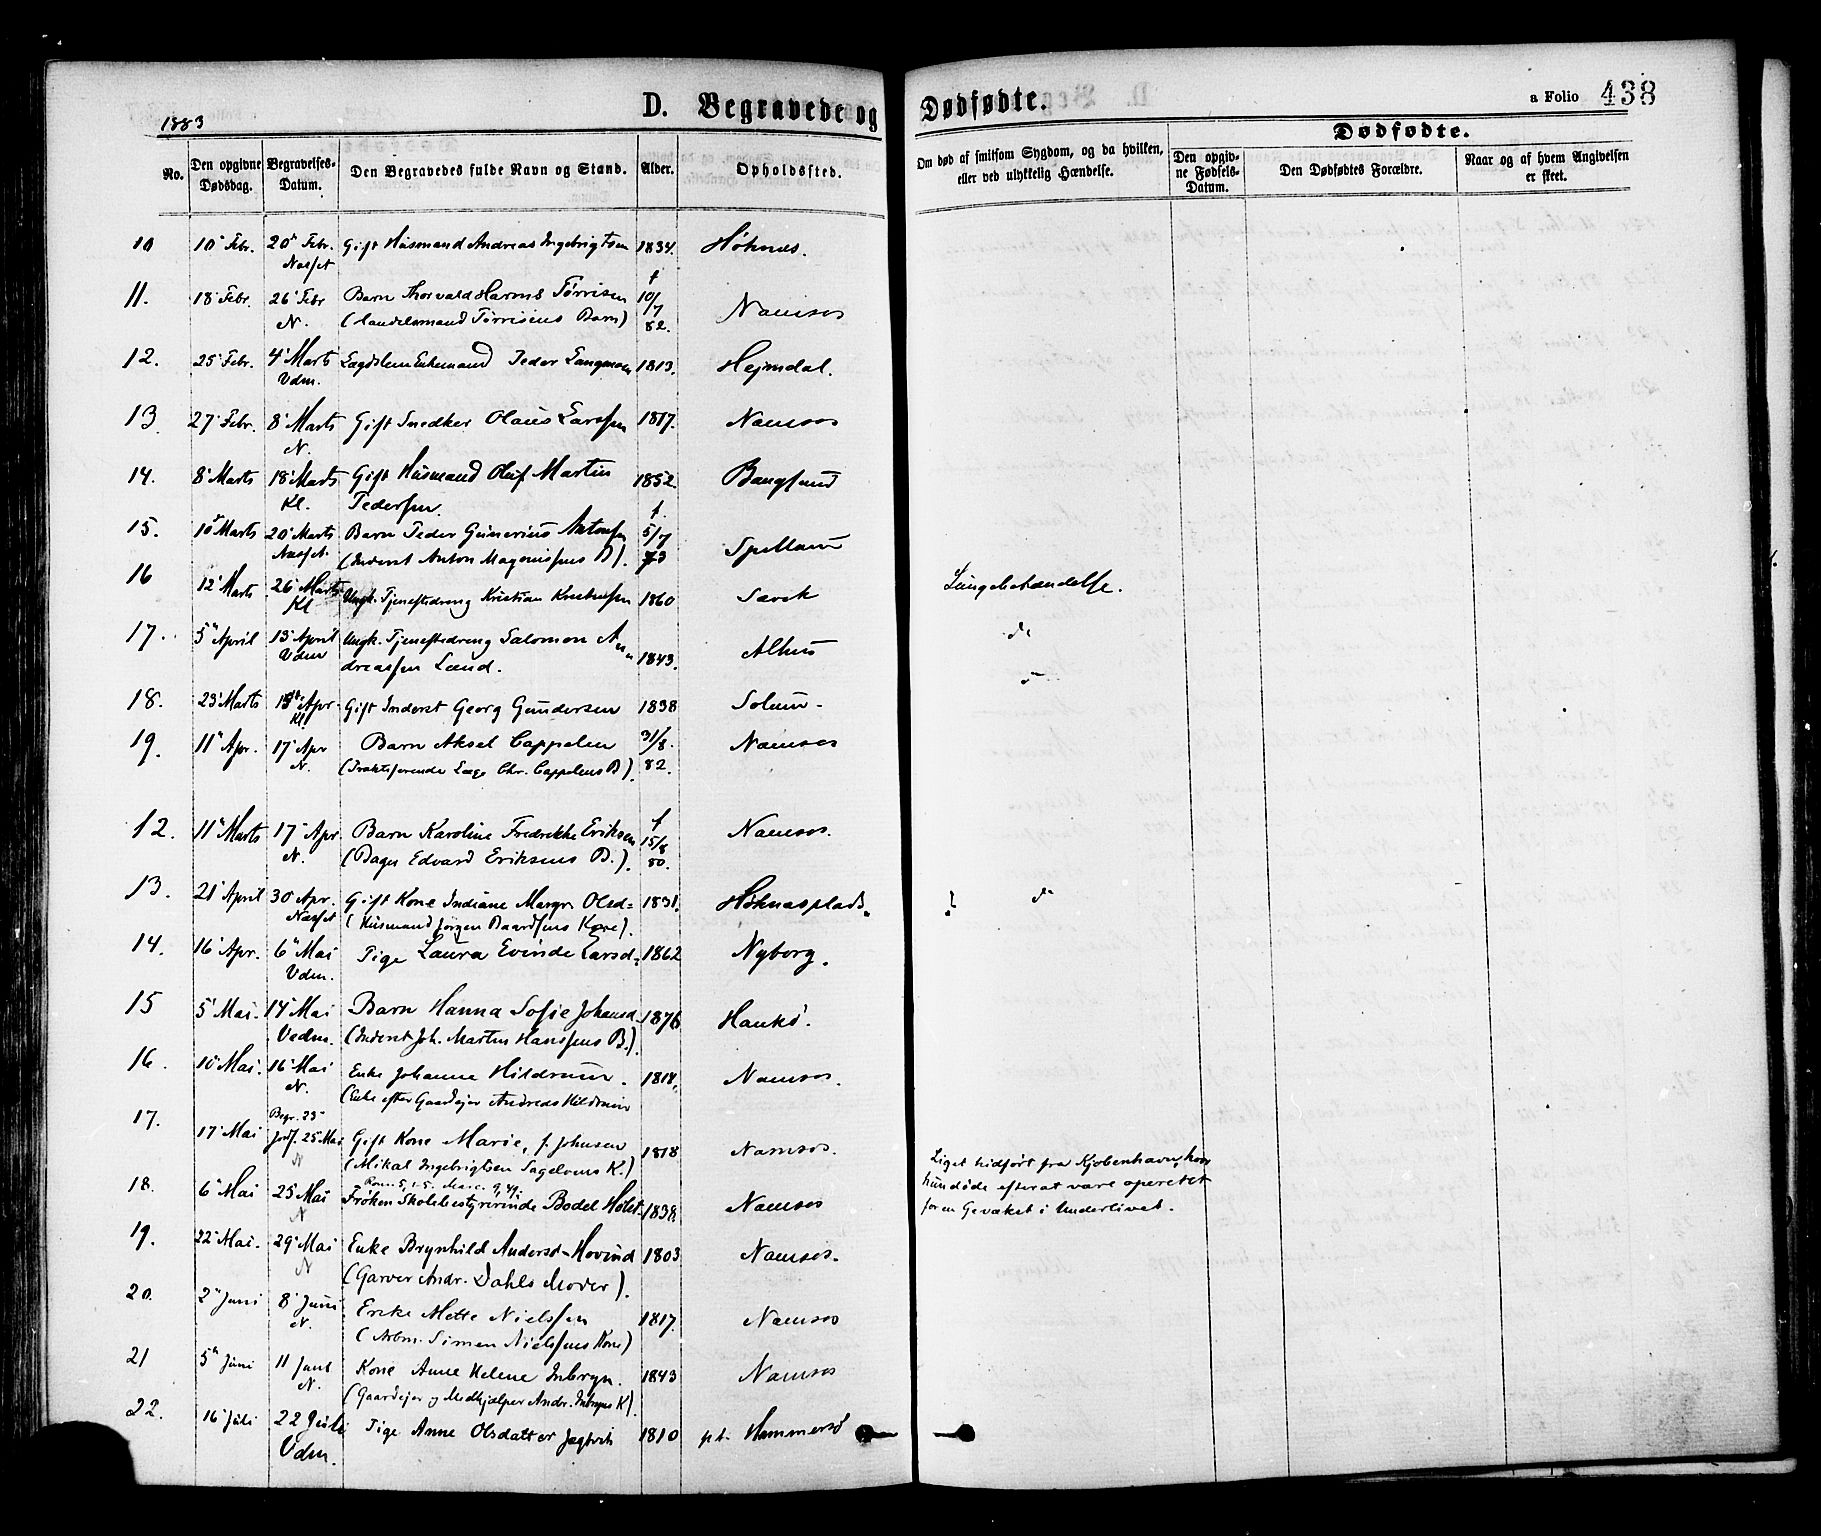 1883
D. Begravede og Dødfødte.
a Folio 438
No.
Den opgivne Dødsdag.
Begravelses-Datum.
Den Begravedes fulde Navn og Stand.
Alder.
Opholdssted.
Om død af smitsom Sygdom, og da hvilken, eller ved ulykkelig Hændelse.
Dødfødte.
Den opgivne Fødsels-Datum.
Den Dødfødtes Forældre.
Naar og af hvem Angivelsen er skeet.
10 10 Febr. 20 Febr. Gift Husmand Andreas Ingebrigtsen 1834. Høknes.
11. 18 Febr. 26 Febr Barn Thorvald Harms Tørrisen 10/7 82. Namsos
N. (Handelsmand Tørrisens Barn)
12. 25 Febr. 4 Marts Enkemand Peder 1813. Hejmdal.
Vdm.
13. 27 Febr. 8 Marts Gift Snedker Olaus Larssen 1817. Namsos
N.
14. 8 Marts 18 Marts Gift Husmand Oluf Martin 1852. Bangsund
Kl. Pedersen.
15. 10 Marts 20 Marts Barn Peder Gunerius Antonsen 5/7 Spillum
(Inderst Anton Magnussens B).
16 12 Marts 26 Marts Ungk. Tjenestedreng Kristian 1860 Sævik
Kl
17. 5 April 13 April Ungk. Tjenestedreng Salomon An-
Vdm dreassen Lund. 1843. Alhus
18. 23 Marts Apr. Gift Inderst Georg Gundersen 1838 Solum
Kl
19. 11 Apr. 17 Apr Barn Aksel Cappelen 31/8. 82. Namsos
N. (Praktiserende Læge Chr. Cappelens B).
12. 11 Marts 17 Apr Barn Karoline Fredrikke Eriksen 15/8 80. Namsos.
N. (Bager Edvard Eriksens B.).
13. 21 April 30 Apr. Gift Kone Indiane Margr. Olsd= 1831. Høknesplads.
(Husmand Jørgen Baardsens Kone).
14. 16 Apr. 6 Mai Pige Laura Evinde Larsd. 1862 Nyborg.
Vdm.
15 5 Mai. 14 Mai Barn Hanna Sofie Johansd. 1876
Vedm. (Inderst Joh. Martin Hanssens B.).
16. 10 Mai. 16 Mai Enke Johanne Hildrum. 1818. Namsos.
N. (Enke efter Gaardejer Andreas Hildrum
17. 17 Mai Begr. 23
Jordf. 25 Mai Gift Kone Marie, f. Johnsen 1818 Namsos.
N (Mikal Ingebrigtsen Sagelvens K.)
18. 6 Mai 25 Mai Rom. 5, 1-5. Marc. 9, 49.
N Frøken Skolebestyrerinde Bodel Holst 1838. Namsos
19. 22 Mai. 29 Mai Enke Brynhild Andersd. Hovind 1803 Namsos.
N (Garver Andr. Dahls Moder).
20. 2 Juni 8 Juni Enke Mette Nielssen 1817. Namsos
N. (Arbm. Simen Nielssens Kone)
21 5 Juni 11 Juni Kone Anne Helene Inbryn. 1843 Namsos
N. (Gaardejer og Medhjælper Andr. Inbryns K).
22. 16 Juli 22 Juli Pige Anne Olsdatter 1810 pt. Hammersø
Vdm.
Lungebetændelse.
Liget hidført fra Kjøbenhavn, hvor
hun døde efter at være operert
for en Gevækst i Underlivet.